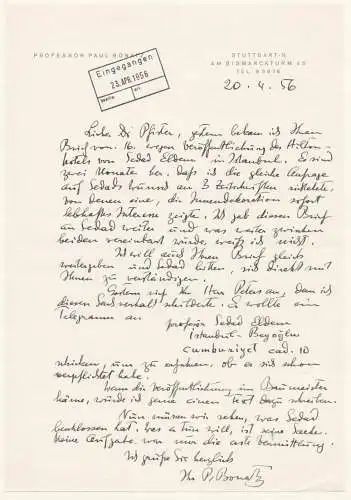 PROFESSOR PAUL BONATZ
STUTTGART-N
AM BISMARCKTURM 45
TEL.
Eingegangen
23. APR. 1956
20. 4. 56
Lieber Dr Pfister, gestern bekam ich Ihren
Brief vom 16. wegen Veröffentlichung des Hilton-
hotels von Sedad Eldem in Istanbul. Es sind
zwei Monate her, daß ich die gleiche Anfrage
auf Sedads Wunsch an 3 Zeitschriften richtete,
von denen eine, die Innendekoration sofort
lebhaftes Interesse zeigte. Ich gab diesen Brief
an Sedad weiter und was weiter zwischen
beiden vereinbart wurde, weiß ich nicht.
Ich will auch Ihren Brief gleich
weitergeben und Sedad bitten, sich direkt mit
Ihnen zu verständigen.
Gestern rief Ihr Herr Peters an, dem ich
diesen Sachverhalt schilderte. Er wollte ein
Telegramm an
professor Sedad Eldem
Istanbul-Beyoğlu
cumhuriyet cad. 10
schicken, um zu erfahren, ob er sich schon
verpflichtet habe.
Wenn die Veröffentlichung im Baumeister
käme, würde ich gerne einen Text dazu schreiben.
Nun müssen wir sehen, was Sedad
beschlossen hat. Was er tun will, ist seine Sache.
Meine Aufgabe war nur die erste Vermittlung.
Ich grüße Sie herzlich
Ihr P. Bonatz